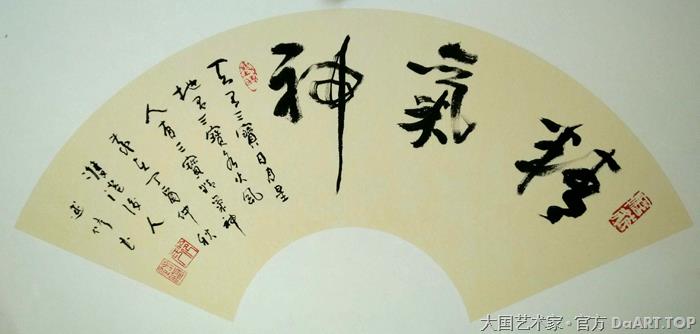 精氣神
天有三寶日月星
地有三寶水火風
人有三寶精氣神
歲在丁酉仲秋
大国艺术家·官方 DaART.TOP